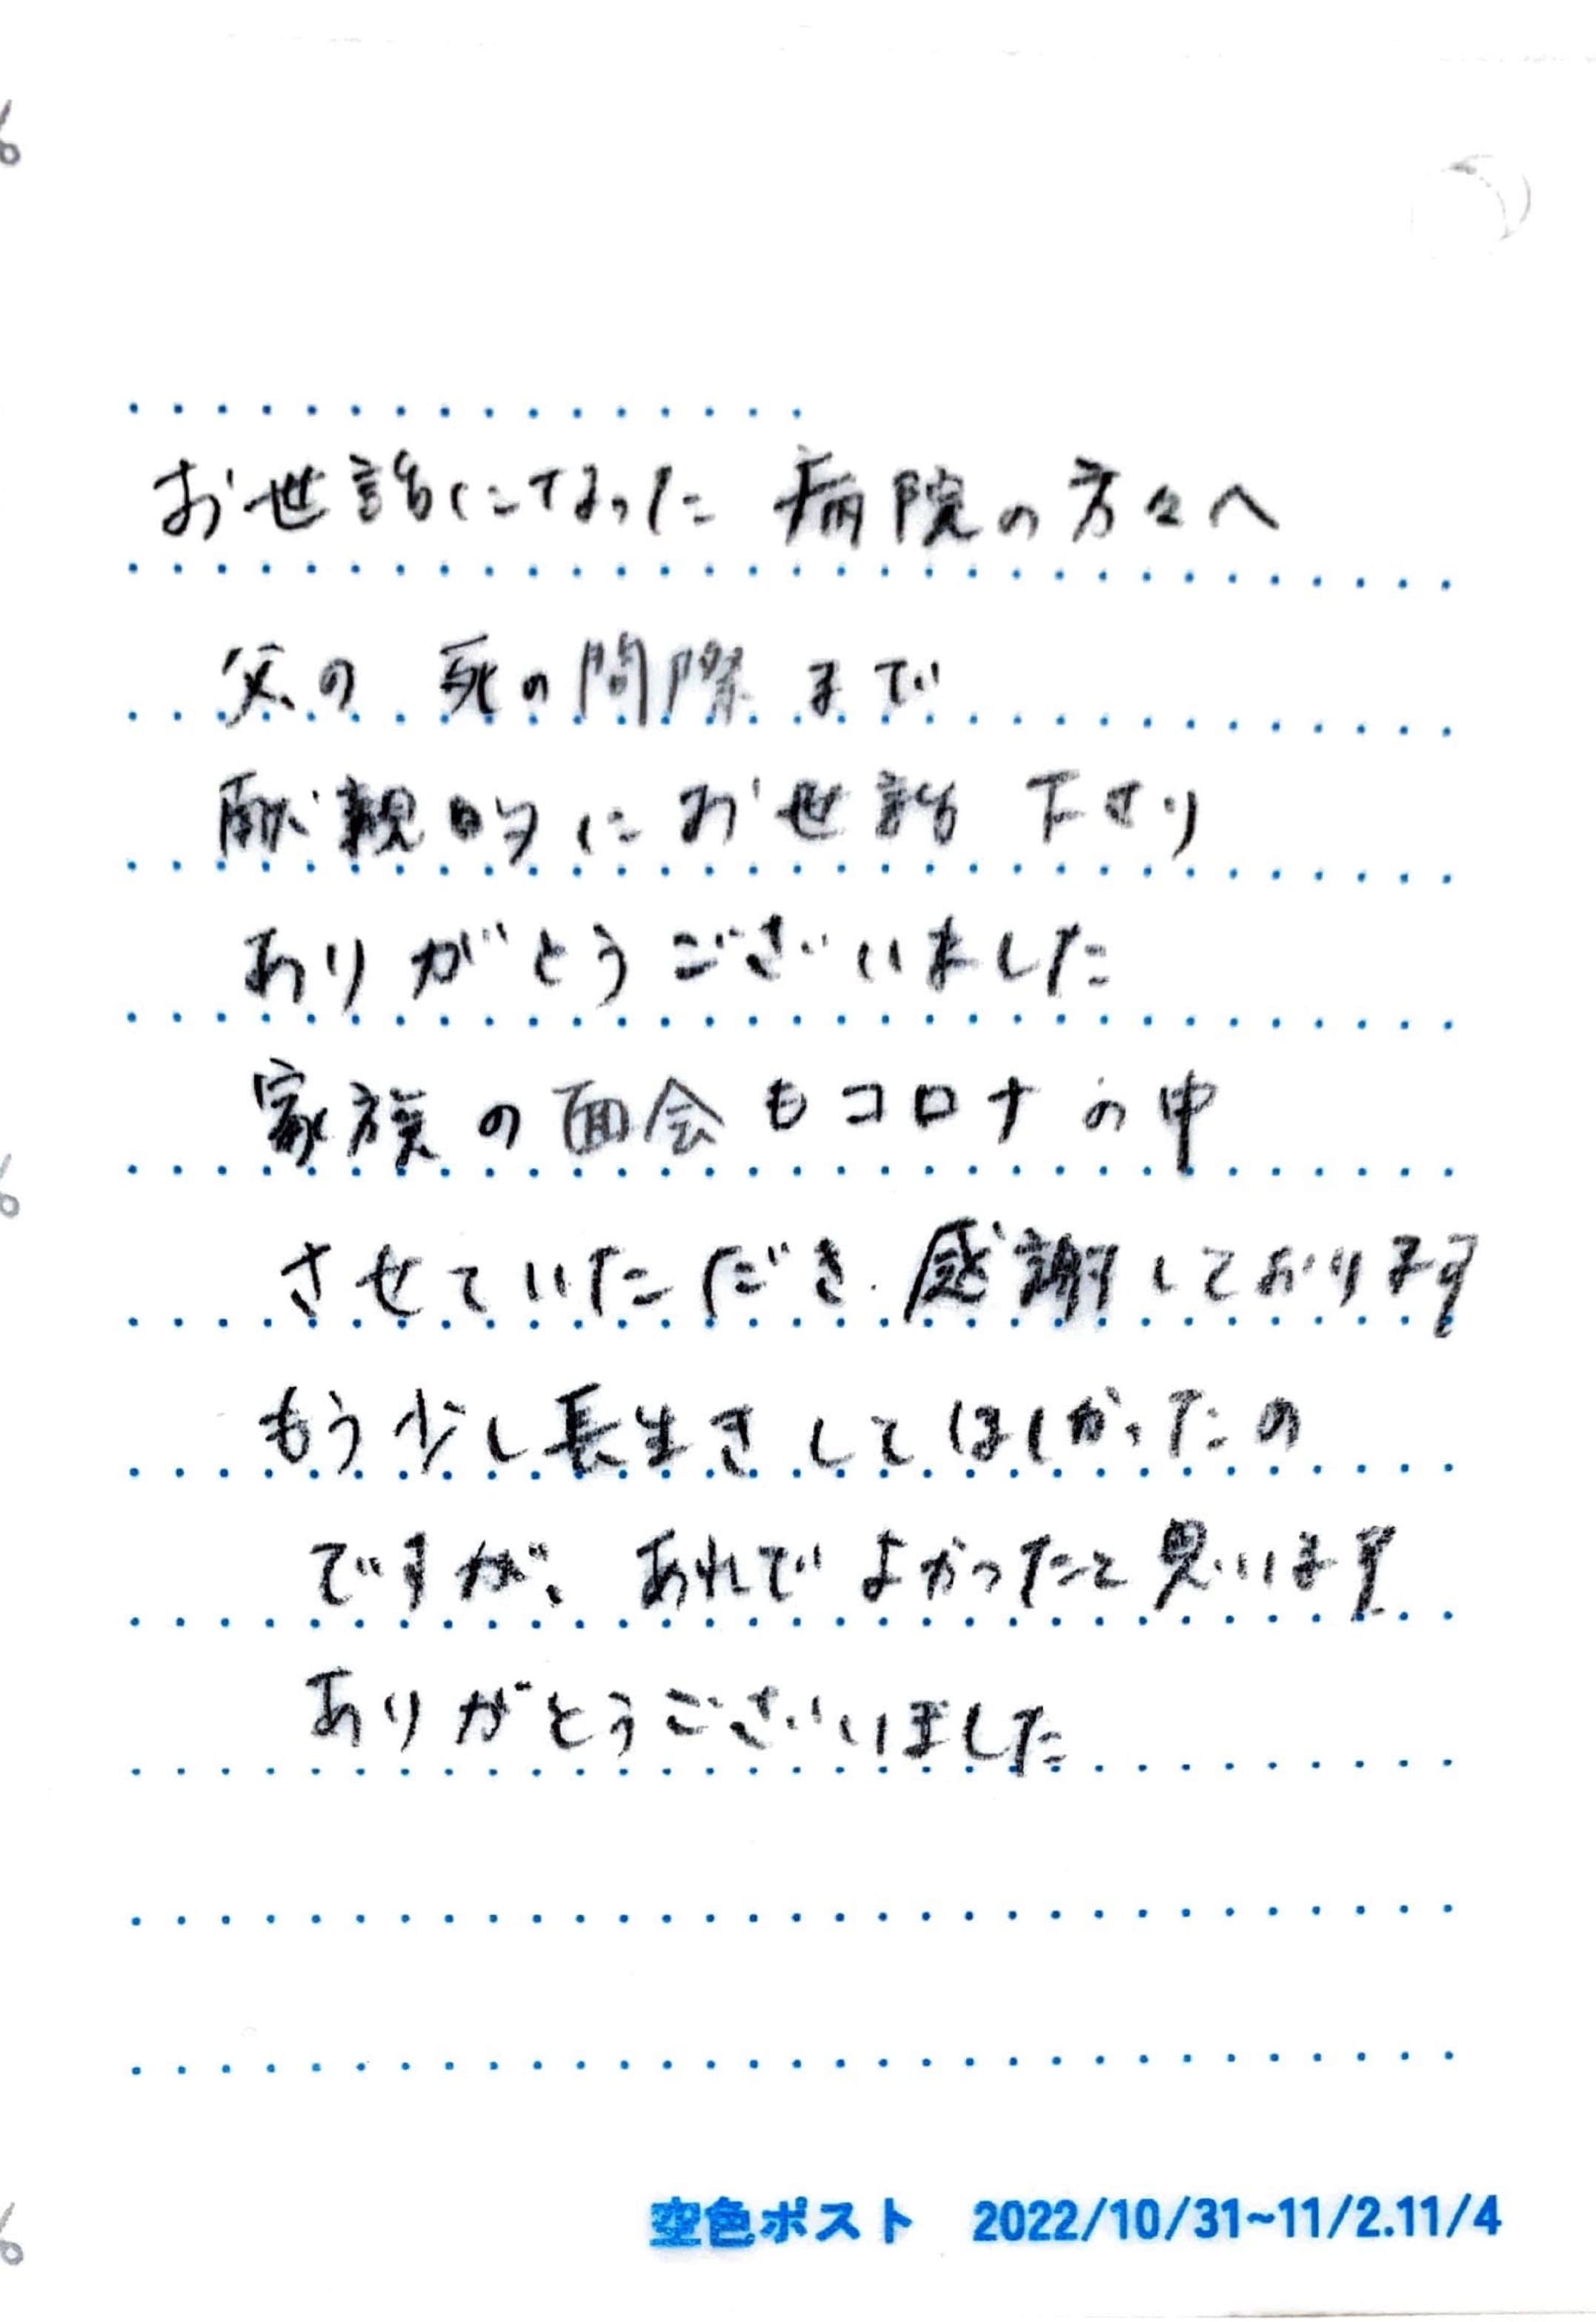 お世話になった 病院の方々へ
父の 死の間際まで
献親的にお世話 下さり
ありがとうございました
家族の面会もコロナの中
させていただき 感謝しております
もう少し長生きしてほしかったの
ですが、あれでよかったと思います
ありがとうございました
空色ポスト 2022/10/31~11/2.11/4